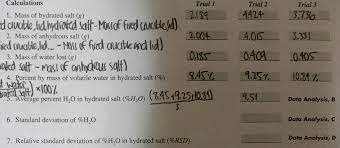 Calculations Trial 1 Trial 2 Trial 3
1. Mass of hydrated salt (g) 2.189 4.424 3.736
crucible, lid, hydrated salt - Mass of fired crucible, lid)
2. Mass of anhydrous salt (g) 2.004 4.015 3.331
fired crucible, lid... - Mass of fired crucible and lid)
3. Mass of water lost (g) 0.185 0.409 0.405
hydrated salt - mass of anhydrous salt)
4. Percent by mass of volatile water in hydrated salt (%) 8.45% 9.25% 10.84%
water
salt) ×100%
5. Average percent H₂O in hydrated salt (%H₂O) (8.45+9.25+10.84) 9.51 Data Analysis, B
3
6. Standard deviation of %H₂O Data Analysis, C
7. Relative standard deviation of %H₂O in hydrated salt (%RSD) Data Analysis, D